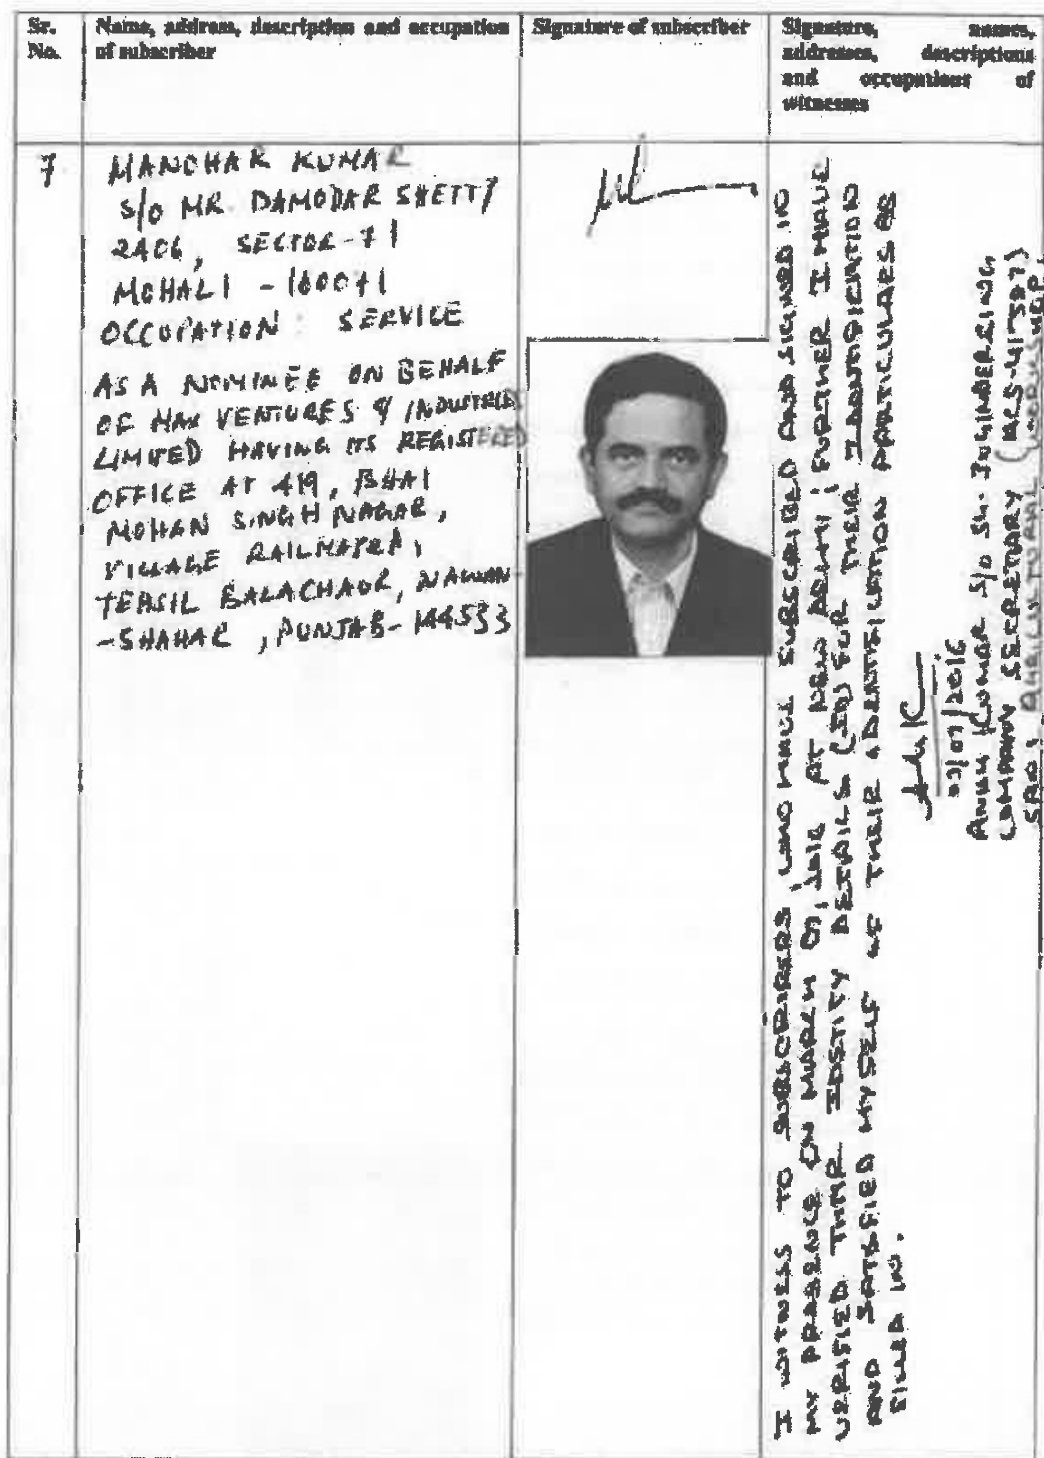 Sr.
No.
Name, address, description and occupation
of subscriber
Signature of subscriber
Signature, names,
addresses, descriptions
and occupations of
witnesses
7
MANOHAR KUMAR
S/O MR. DAMODAR SHETTY
2406, SECTOR-71
MOHALI - 160071
OCCUPATION SERVICE
AS A NOMINEE ON BEHALF
OF MAX VENTURES & INDUSTRIES
LIMITED HAVING ITS REGISTERED
OFFICE AT 419, BHAI
MOHAN SINGH NAGAR,
VILLAGE RAILMAJRA,
TEHSIL BALACHAUR, NAWAN-
-SHAHAR, PUNJAB-144533
I WITNESS TO SUBSCRIBERS, WHO HAVE SUBSCRIBED AND SIGNED IN
MY PRESENCE ON MARCH 03, 2016 AT NEW DELHI; FURTHER I HAVE
VERIFIED THEIR IDENTITY DETAILS (ID) FOR THEIR IDENTIFICATION
AND SATISFIED MYSELF OF THEIR IDENTIFICATION PARTICULARS AS
FILLED IN.
03/03/2016
KUMAR S/O SH. JOGINDER SINGH
COMPANY SECRETARY